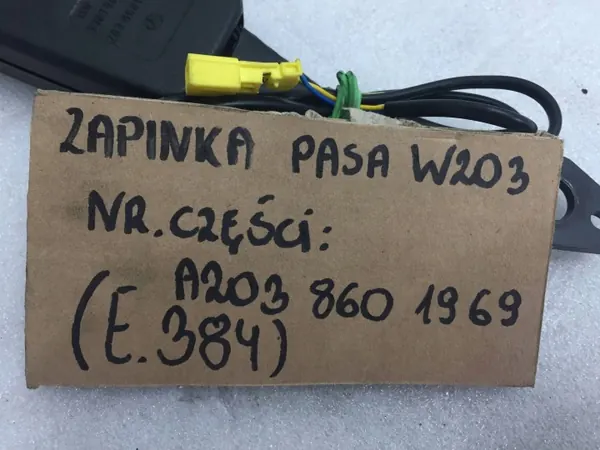 ZAPINKA PASA W203
NR. CZĘŚCi:
A203 860 1969
(E.384)